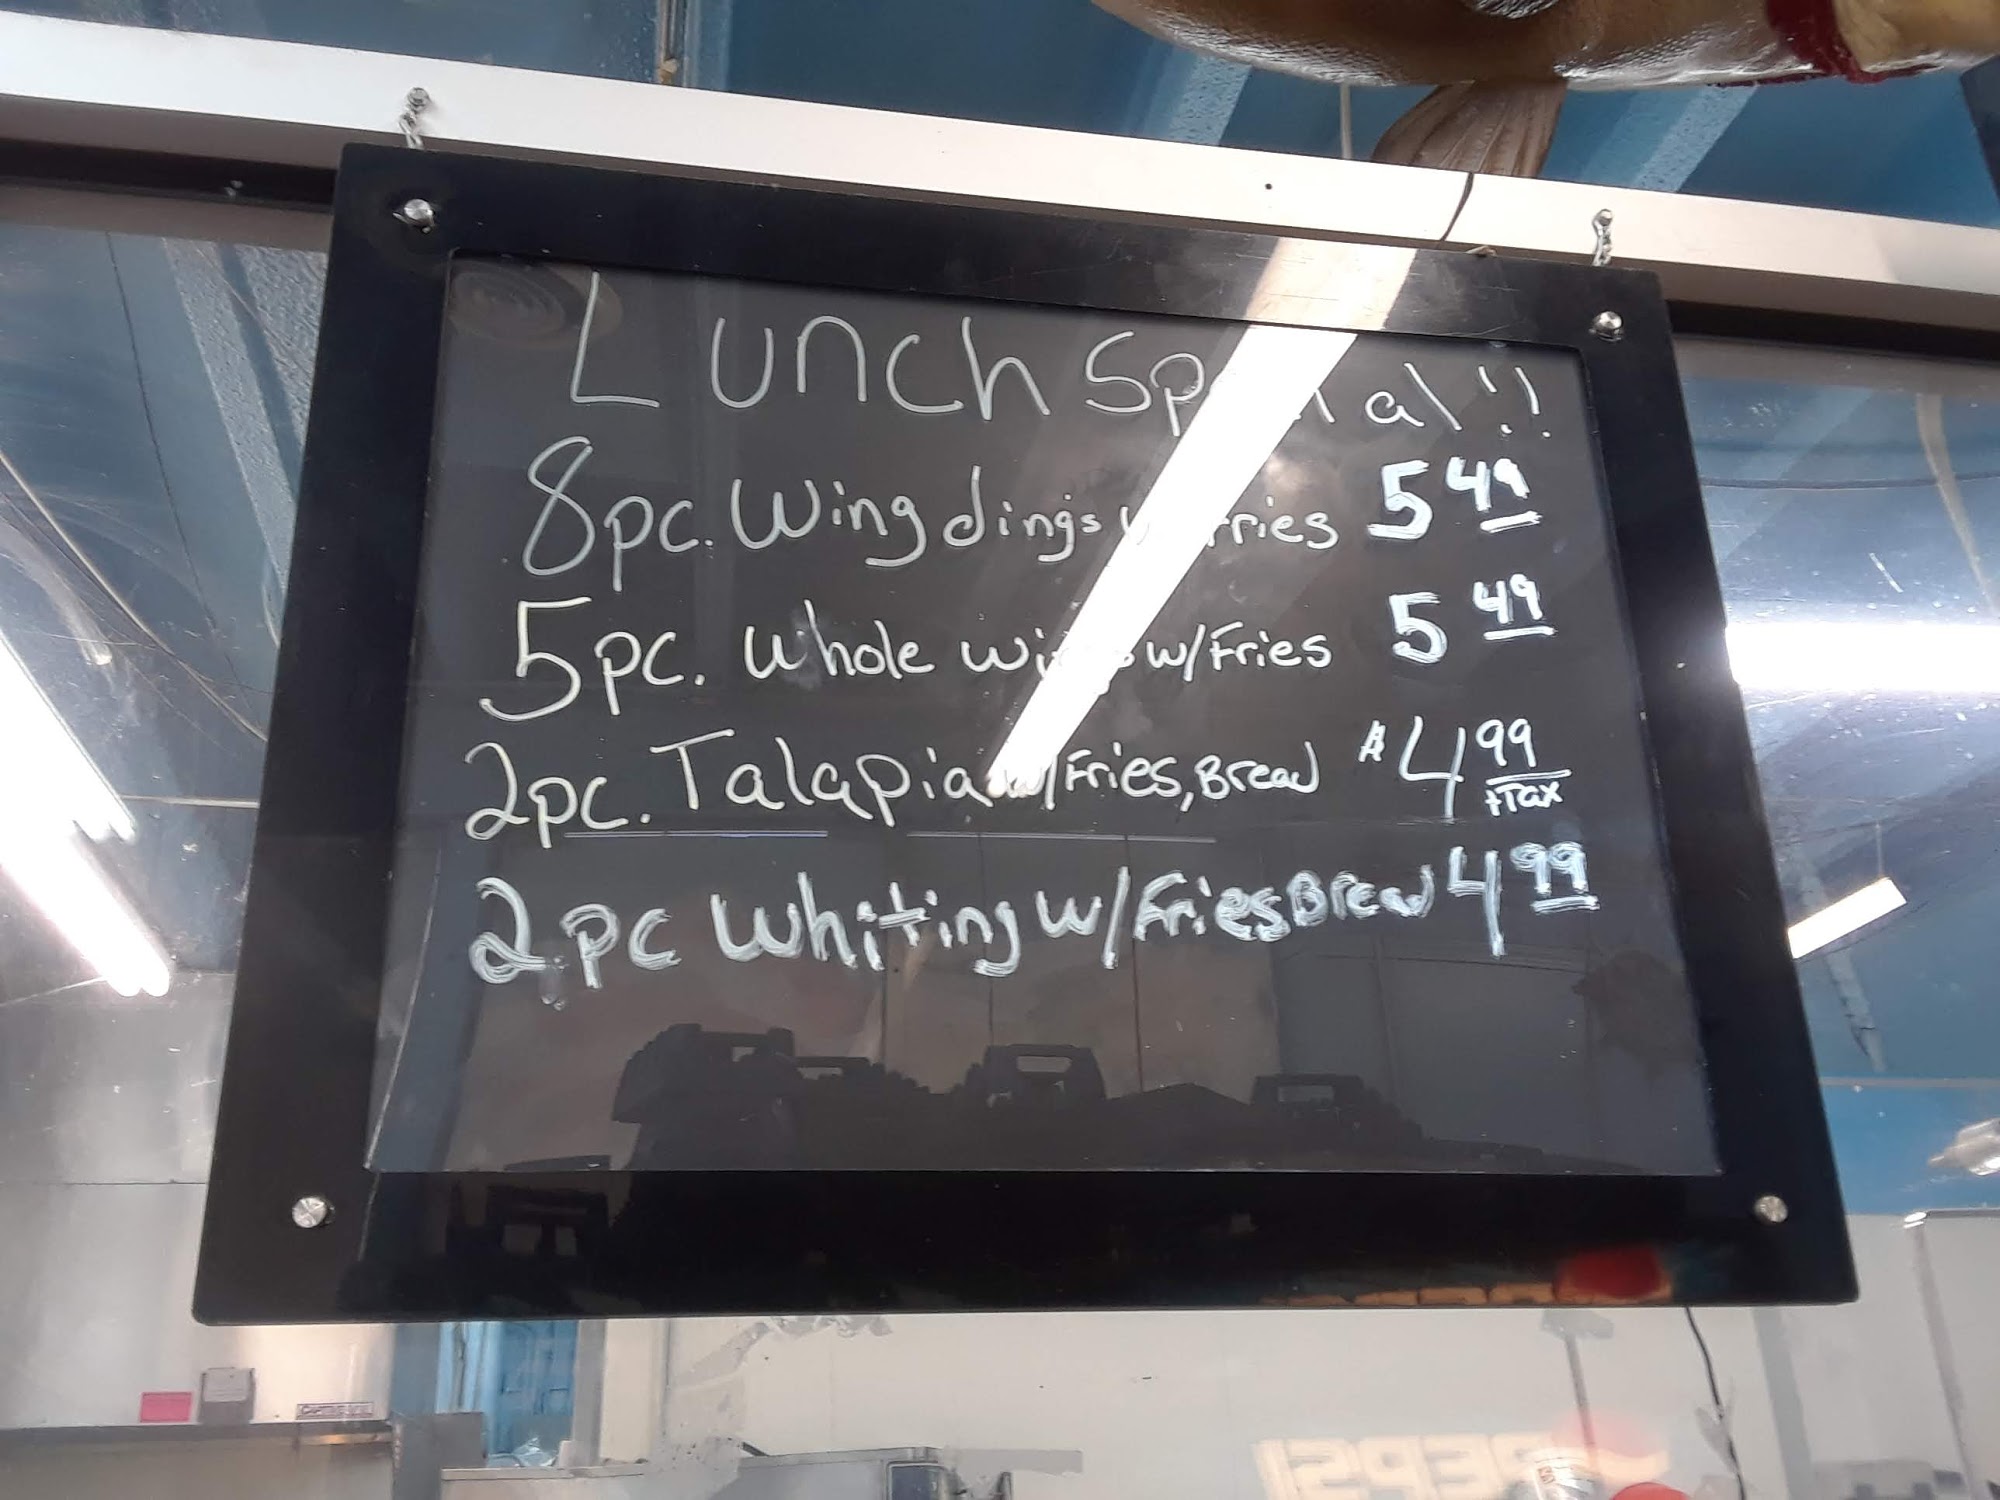 Lunch Special!!
8pc. Wing dings w/Fries 5 49
5pc. Whole wings w/Fries 5 49
2pc. Talapia w/Fries, Bread $4 99
+Tax
2pc Whiting w/Fries Bread 4 99
PEPSI